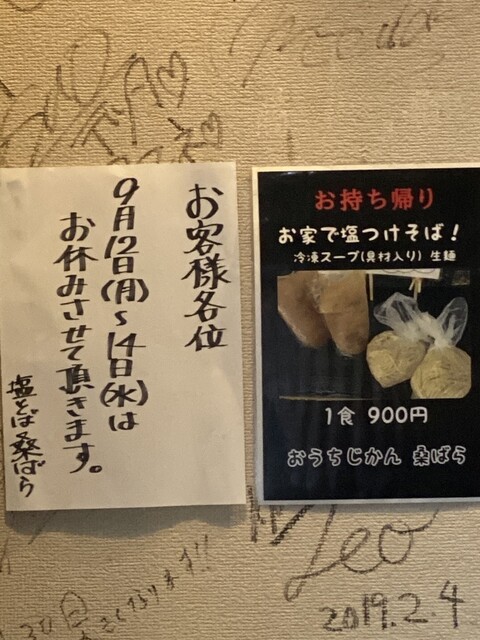 お客様各位
9月12日(月)~14日(水)は
お休みさせて頂きます。
塩そば桑ばら
お持ち帰り
お家で塩つけそば!
冷凍スープ(具材入り) 生麺
1食 900円
おうちじかん 桑ばら
Leo
2019.2.4